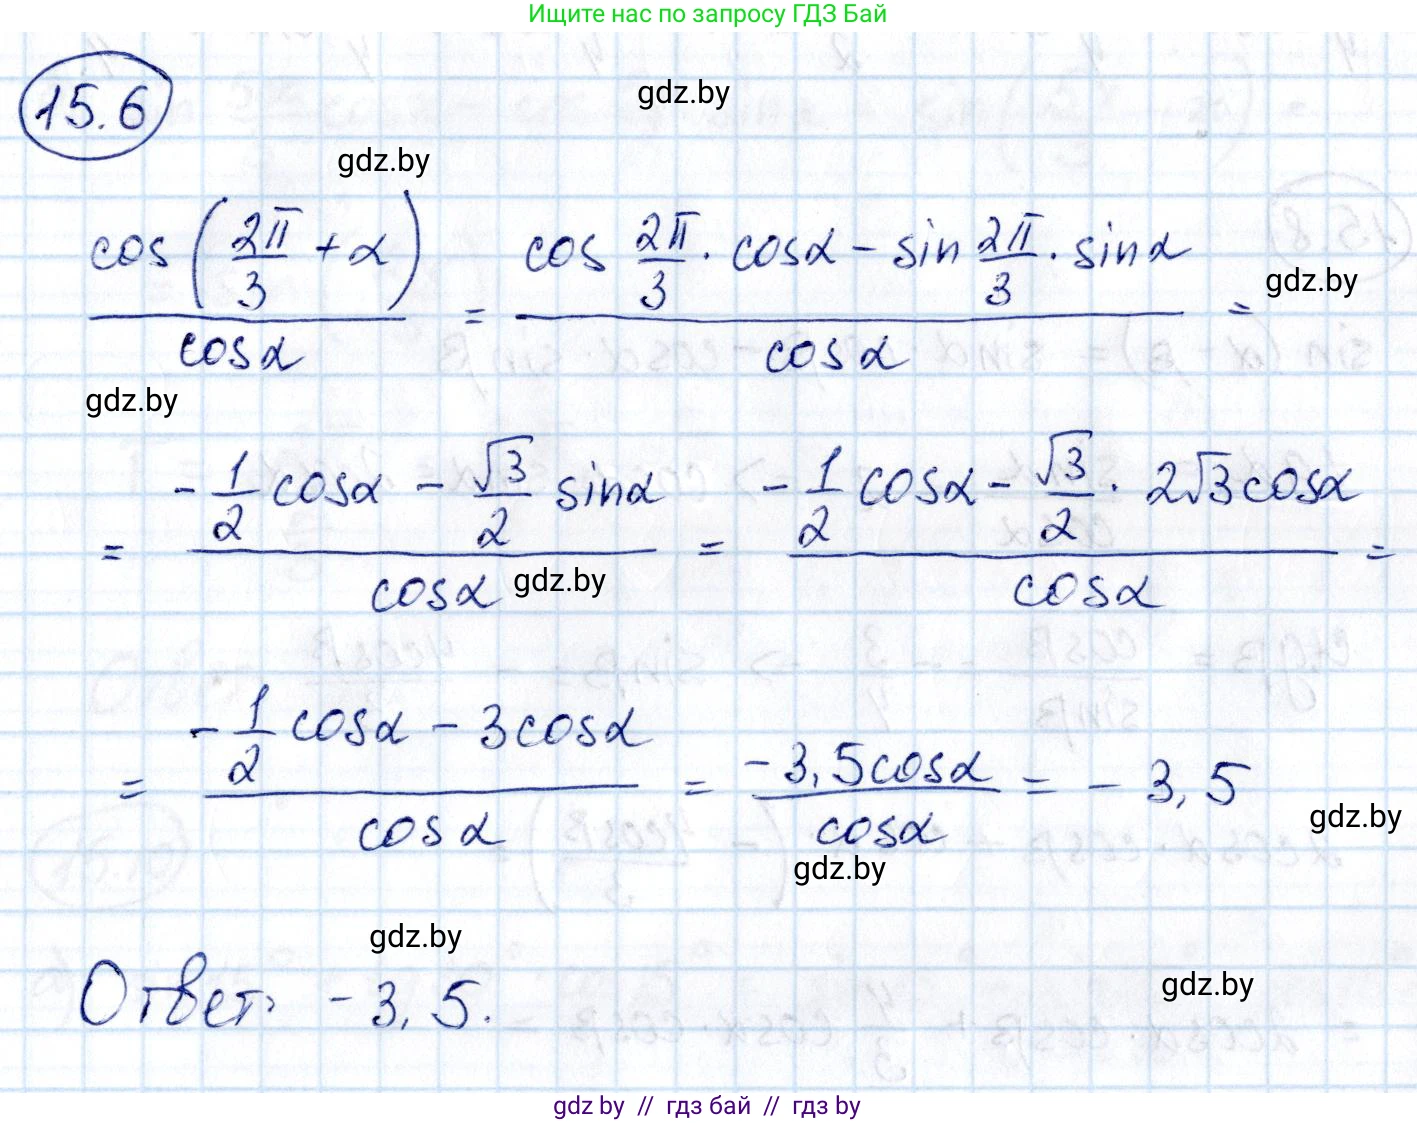 Ищите нас по запросу ГДЗ Бай
15.6
gdz.by
gdz.by
cos(2π/3 + α) / cosα = (cos 2π/3 · cosα – sin 2π/3 · sinα) / cosα =
gdz.by
gdz.by
= (-1/2 cosα – √3/2 sinα) / cosα = (-1/2 cosα – √3/2 · 2√3cosα) / cosα =
gdz.by
= (-1/2 cosα – 3cosα) / cosα = -3,5cosα / cosα = – 3,5
gdz.by
gdz.by
gdz.by
Ответ: – 3,5.
gdz.by
gdz by // гдз бай // гдз by